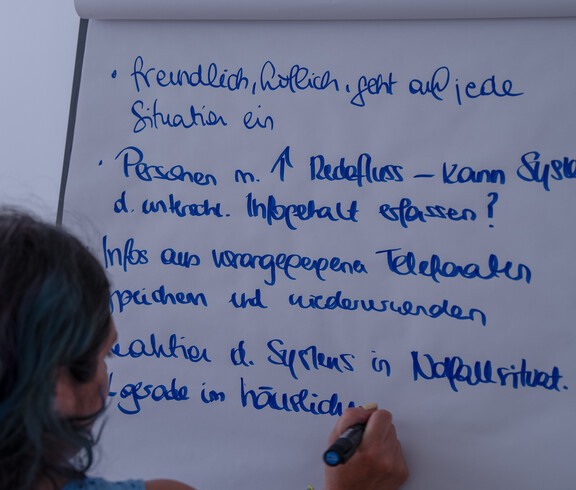 • freundlich, höflich, geht auf jede
Situation ein
• Personen m. ↑ Redefluss – kann Syste
d. untersch. Infogehalt erfassen?
Infos aus vorangegangenen Telefonaten
speichern und wiederverwenden
eaktion d. Systems in Notfallsituat.
gerade im häuslich